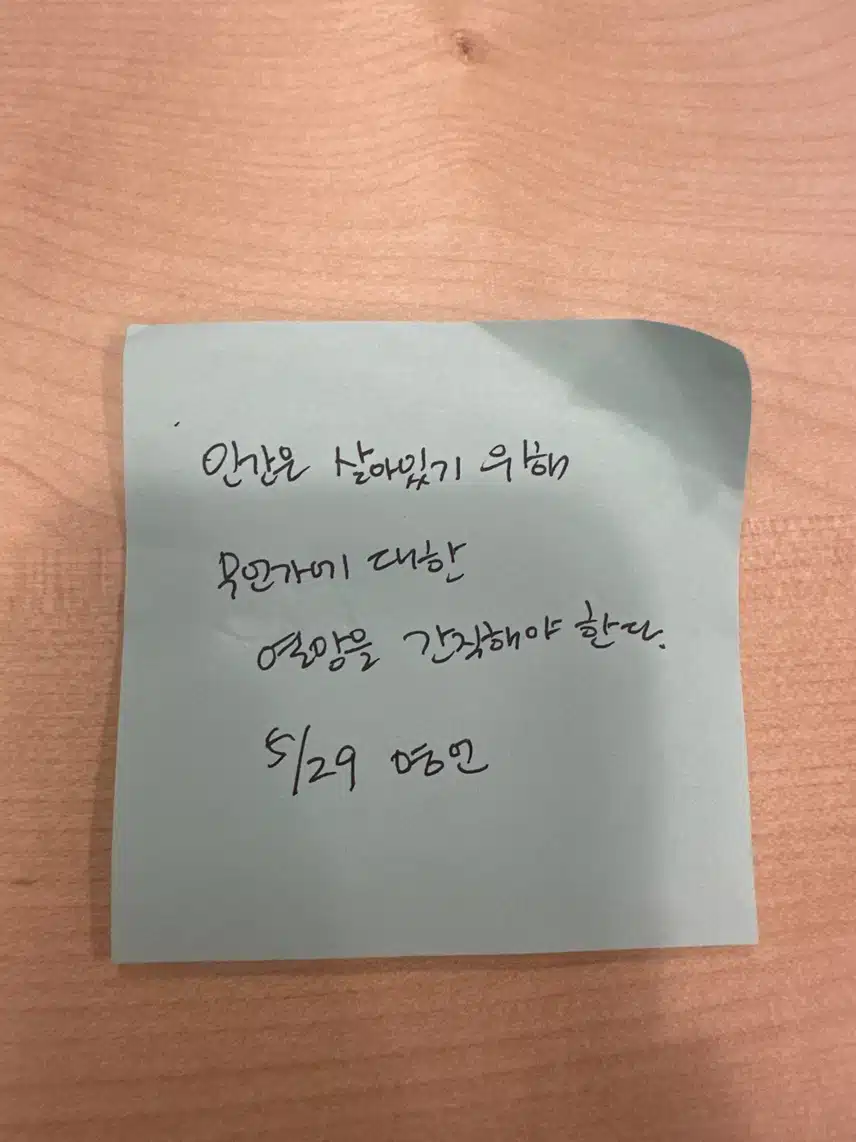 인간은 살아있기 위해
무언가에 대한
열망을 간직해야 한다.
5/29 명언